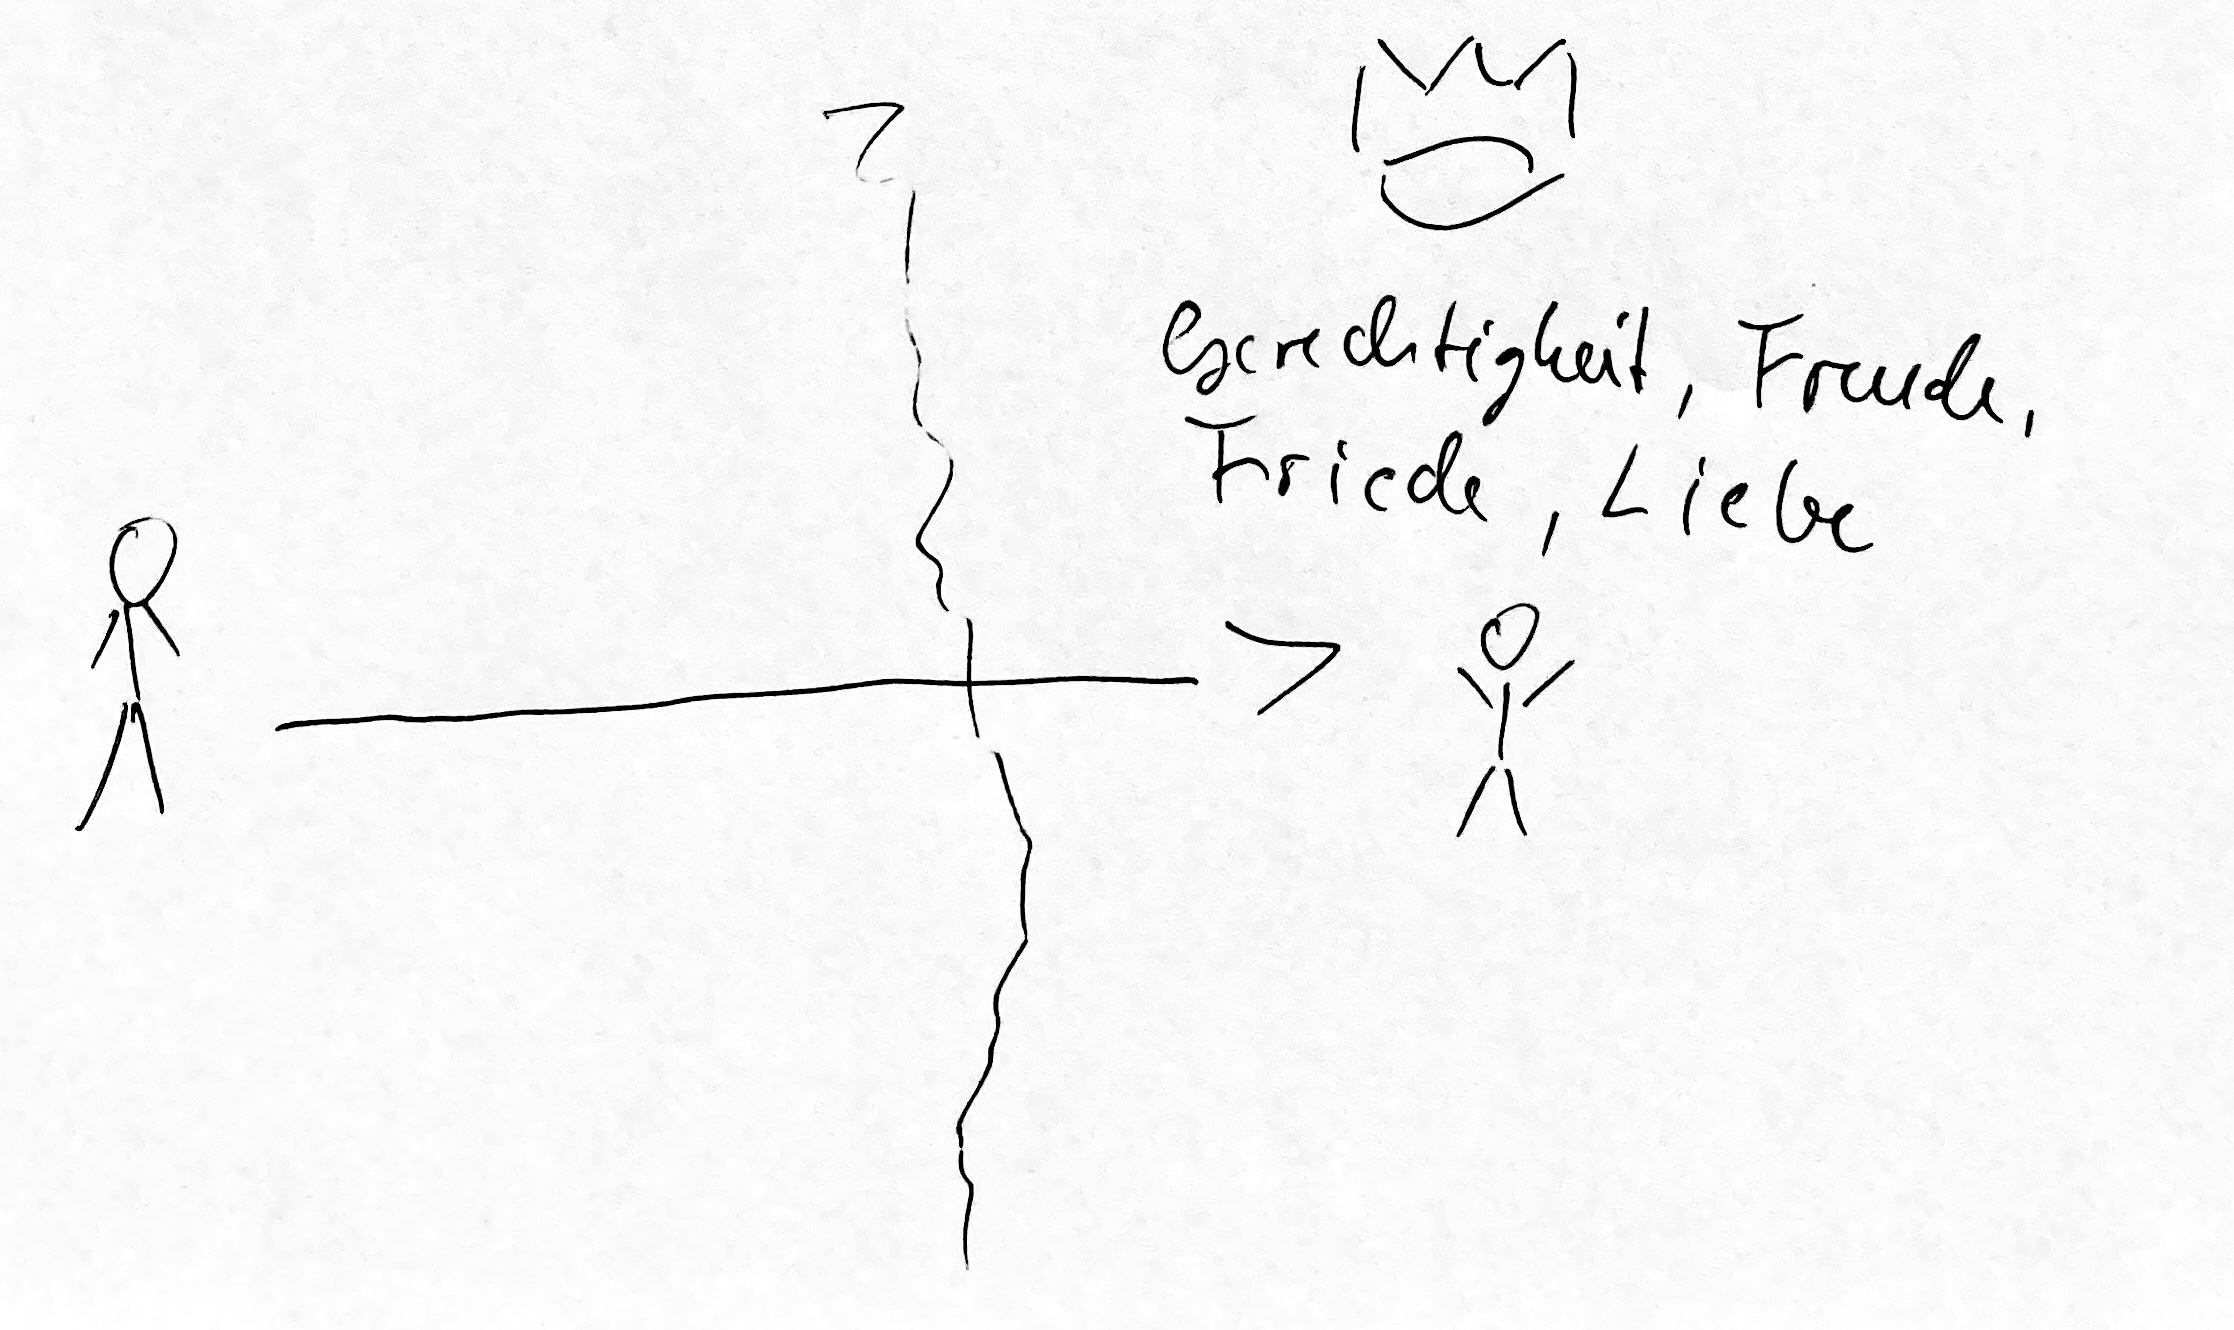 Gerechtigkeit, Freude,
Friede, Liebe